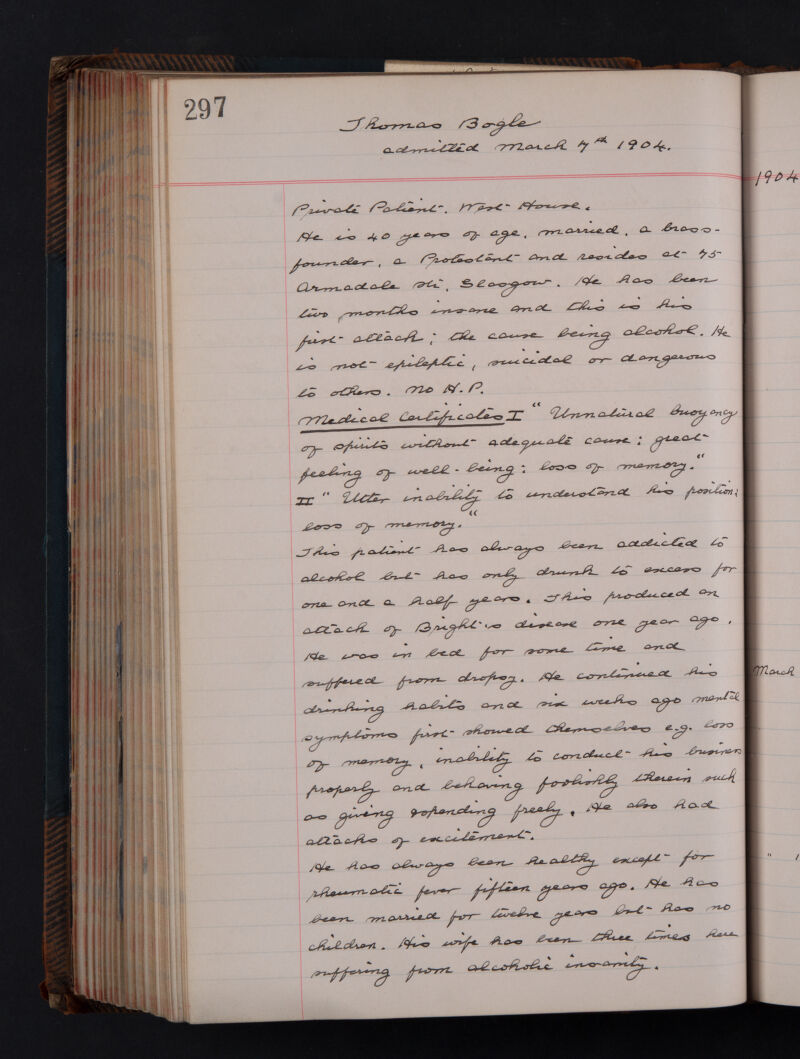 297
Thomas Bogle
admitted March 7th 1904.
1904
Private Patient. West House.
He is 40 years of age, married, a brass-
founder, a Protestant and resides at 75
Armadale St, Glasgow. He has been
two months insane and this is his
first attack; the cause being alcohol. He
is not epileptic, suicidal or dangerous
to others. No H.P.
Medical Certificates I "Unnatural buoyancy
of spirits without adequate cause: great
feeling of well-being: loss of memory."
II "Utter inability to understand his position:
loss of memory."
This patient has always been addicted to
alcohol but has only drunk to excess for
one and a half years. This produced an
attack of Bright's disease one year ago.
He was in bed for some time and
suffered from dropsy. He continued his
March
drinking habits and six weeks ago mental
symptoms first showed themselves e.g. loss
of memory, inability to conduct his business
properly and behaving foolishly therein such
as giving & spending freely. He also had
attacks of excitement.
He has always been healthy except for
rheumatic fever fifteen years ago. He has
been married for twelve years but has no
children. His wife has been three times here
suffering from alcoholic insanity.